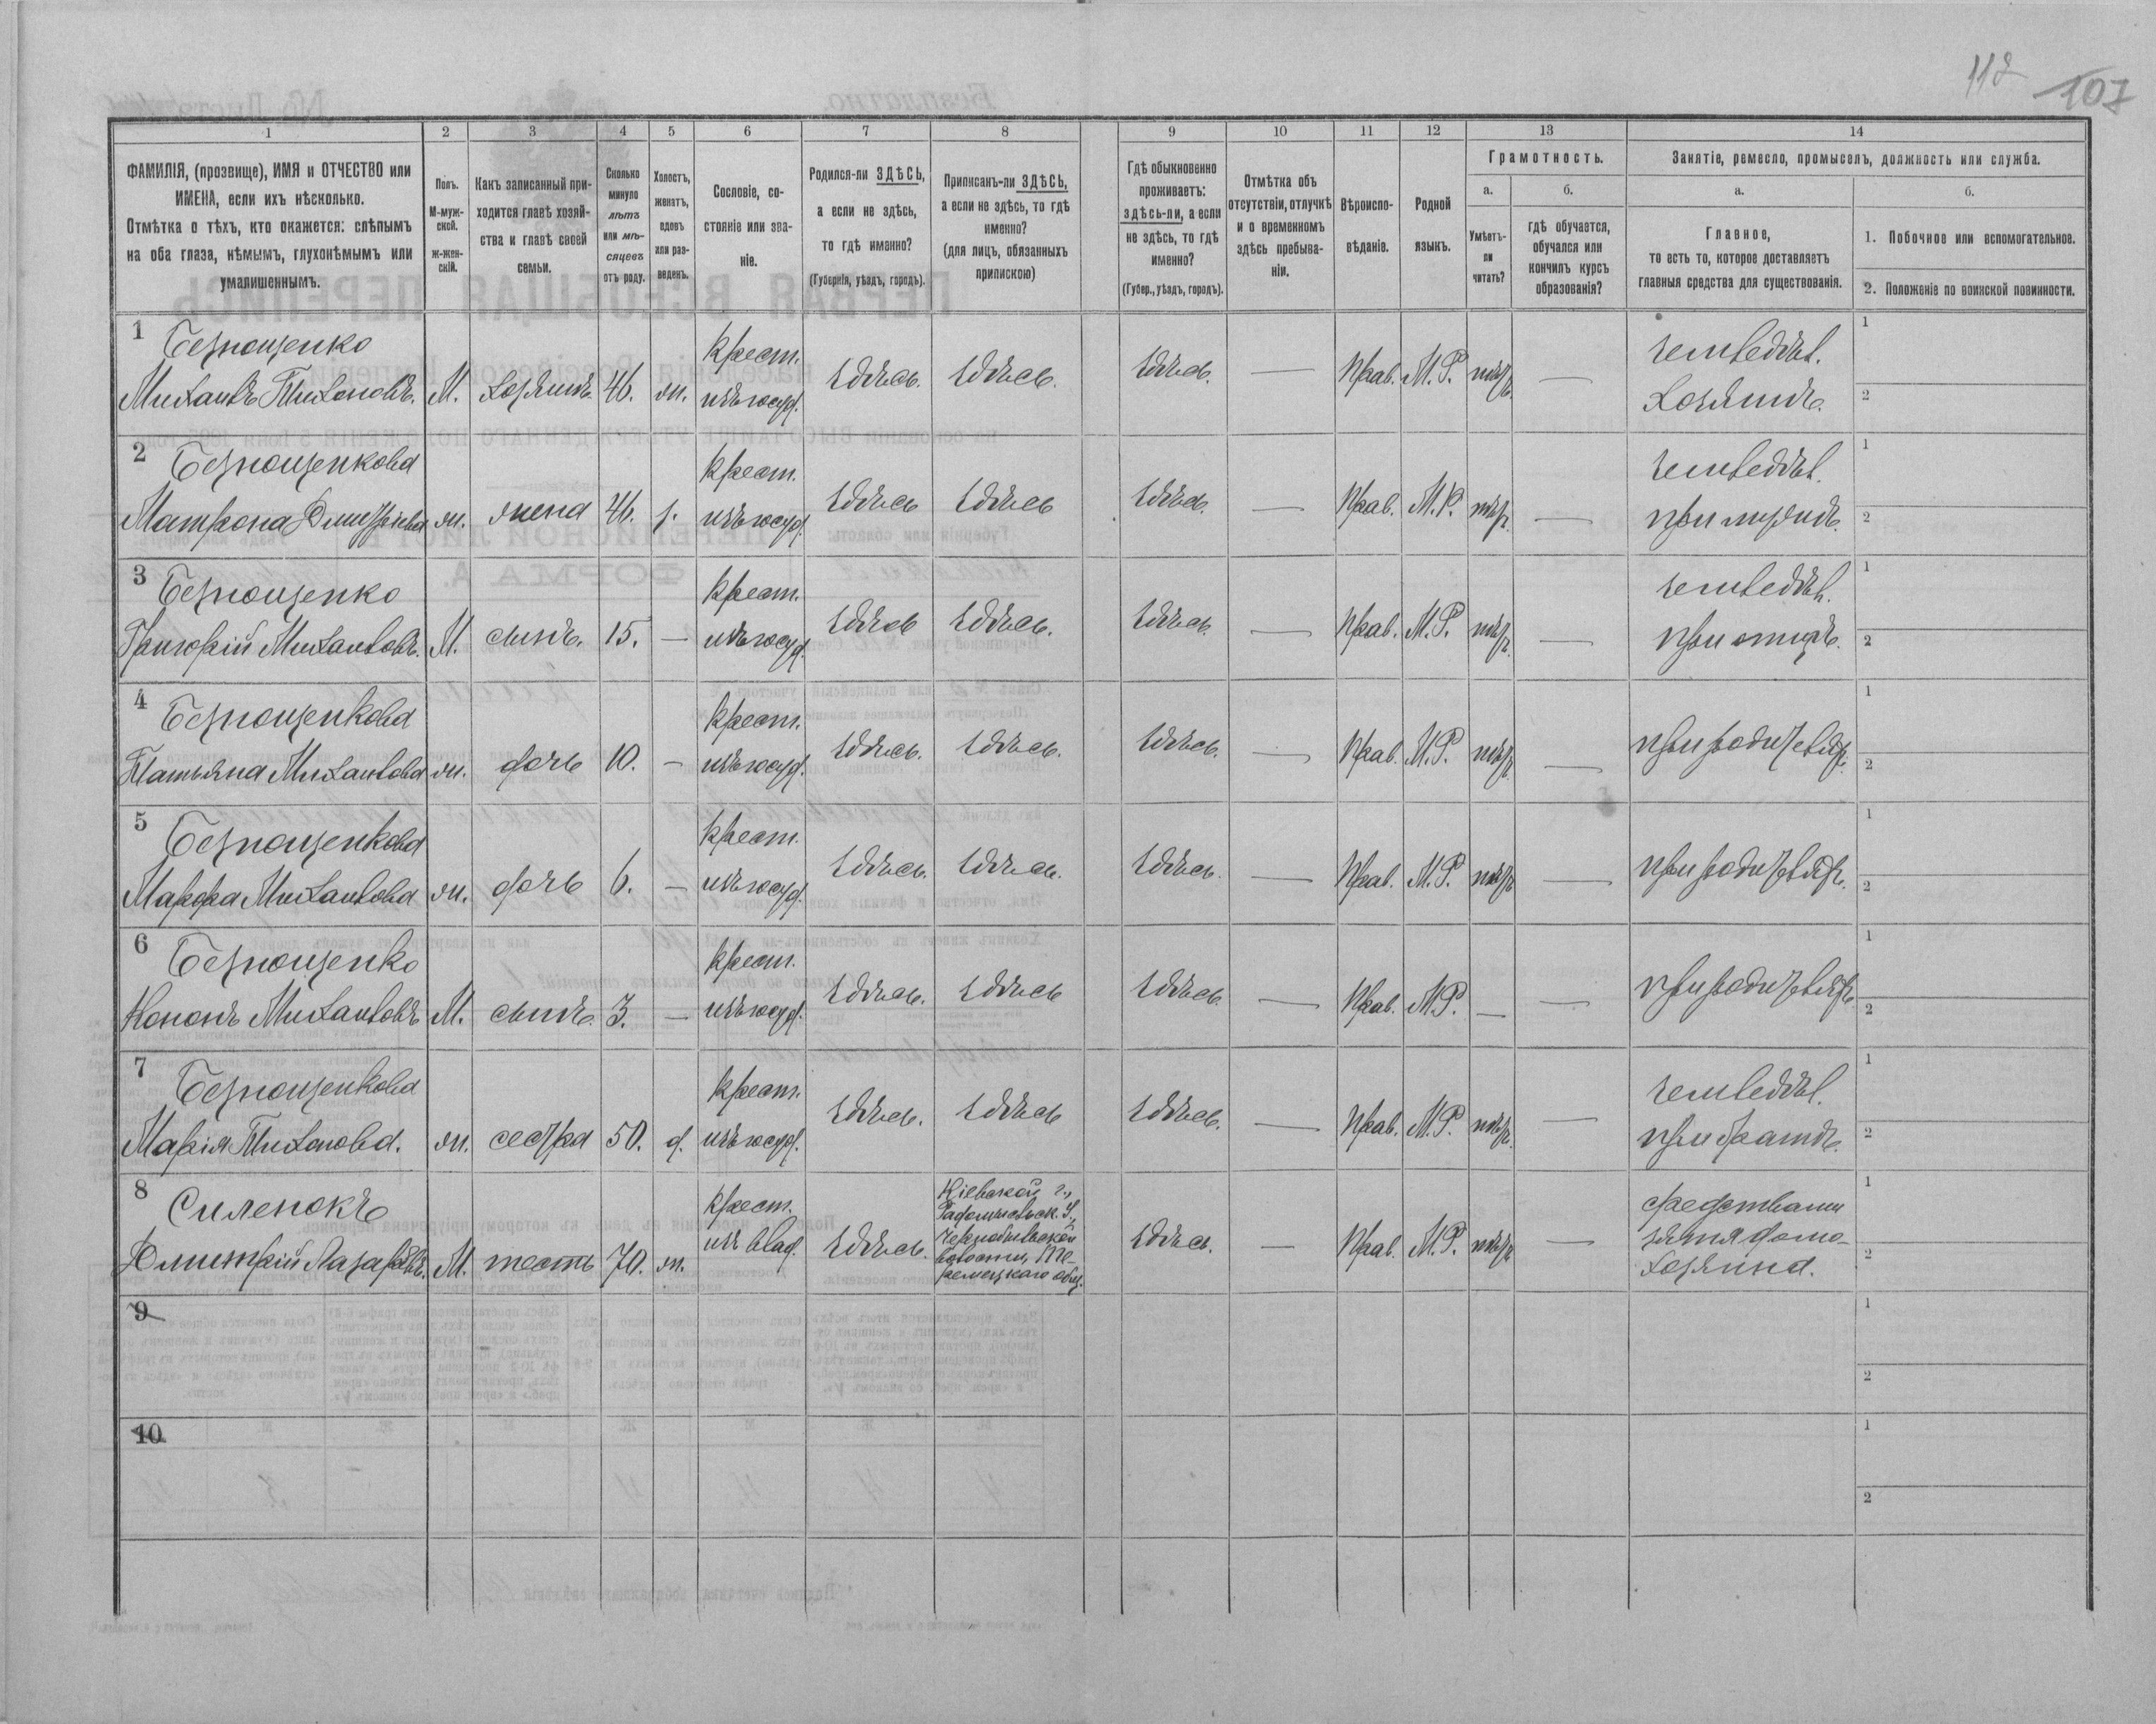 112
107
1
2
3
4
5
6
7
8
9
10
11
12
13
14
ФАМИЛІЯ, (прозвище), ИМЯ и ОТЧЕСТВО или
ИМЕНА, если ихъ нѣсколько.
Отмѣтка о тѣхъ, кто окажется: слѣпымъ
на оба глаза, нѣмымъ, глухонѣмымъ или
умалишеннымъ.
Полъ.
М-муж-
ской.
ж-жен-
скій.
Какъ записанный при-
ходится главѣ хозяй-
ства и главѣ своей
семьи.
Сколько
минуло
лѣтъ
или мѣ-
сяцевъ
отъ роду.
Холостъ,
женатъ,
вдовъ
или раз-
веденъ.
Сословіе, со-
стояніе или зва-
ніе.
Родился-ли ЗДѢСЬ,
а если не здѣсь,
то гдѣ именно?
(Губернія, уѣздъ, городъ).
Приписанъ-ли ЗДѢСЬ,
а если не здѣсь, то гдѣ
именно?
(для лицъ, обязанныхъ
припискою)
Гдѣ обыкновенно
проживаетъ:
здѣсь-ли, а если
не здѣсь, то гдѣ
именно?
(Губер., уѣздъ, городъ).
Отмѣтка объ
отсутствіи, отлучкѣ
и о временномъ
здѣсь пребыва-
ніи.
Вѣроиспо-
вѣданіе.
Родной
языкъ.
Грамотность.
а.
Умѣетъ-
ли
читать?
б.
гдѣ обучается,
обучался или
кончилъ курсъ
образованія?
Занятіе, ремесло, промыселъ, должность или служба.
а.
Главное,
то есть то, которое доставляетъ
главныя средства для существованія.
б.
1. Побочное или вспомогательное.
2. Положеніе по воинской повинности.
1
Безпощенко
Михаилъ Тихоновъ.
М.
хозяинъ
46.
ж.
Крест.
изъ госуд.
здѣсь.
здѣсь.
здѣсь.
—
Прав.
М.Р.
нѣтъ
—
земледѣл.
хозяинъ.
1
2
2
Безпощенкова
Матрона Дмитріева
ж.
жена
46.
з.
Крест.
изъ госуд.
здѣсь
здѣсь
здѣсь.
—
Прав.
М.Р.
нѣтъ.
—
земледѣл.
при мужѣ.
1
2
3
Безпощенко
Григорій Михаиловъ.
М.
сынъ.
15.
—
Крест.
изъ госуд.
здѣсь
здѣсь.
здѣсь.
—
Прав.
М.Р.
нѣтъ.
—
земледѣл.
при отцѣ.
1
2
4
Безпощенкова
Татьяна Михаилова
ж.
дочь
10.
—
Крест.
изъ госуд.
здѣсь.
здѣсь.
здѣсь.
—
Прав.
М.Р.
нѣтъ
—
при родителяхъ.
1
2
5
Безпощенкова
Марфа Михаилова
ж.
дочь
6.
—
Крест.
изъ госуд.
здѣсь.
здѣсь.
здѣсь.
—
Прав.
М.Р.
нѣтъ
—
при родителяхъ.
1
2
6
Безпощенко
Кононъ Михаиловъ
М.
сынъ.
3.
—
Крест.
изъ госуд.
здѣсь.
здѣсь
здѣсь.
—
Прав.
М.Р.
—
—
при родителяхъ.
1
2
7
Безпощенкова
Марія Тихонова.
ж.
сестра
50.
д.
Крест.
изъ госуд.
здѣсь.
здѣсь
здѣсь.
—
Прав.
М.Р.
нѣтъ.
—
земледѣл.
при братѣ.
1
2
8
Силенокъ
Дмитрій Лазаревъ.
М.
тесть
70.
ж.
Крест.
изъ влад.
здѣсь.
Кіевской г.,
Радомысльск. У.,
Чернобыльской
волости, Те-
ремецкаго общ.
здѣсь.
—
Прав.
М.Р.
нѣтъ
—
средствами
зятя домо-
хозяина.
1
2
9
1
2
10
1
2